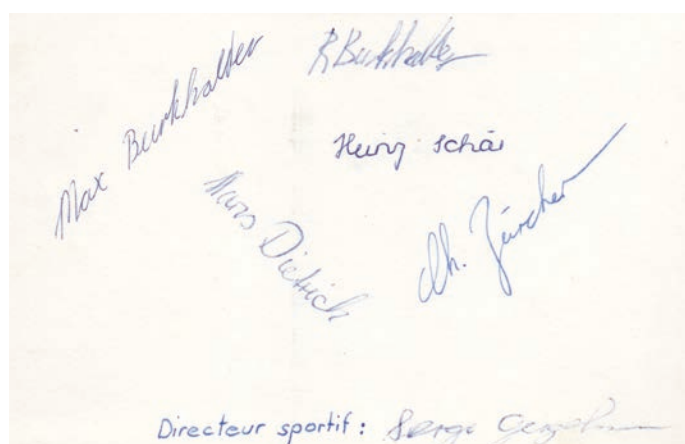 Max Burkhalter
R Burkhalter
Heinz Schär
Hans Dietrich
Ch. Zürcher
Directeur sportif: Serge